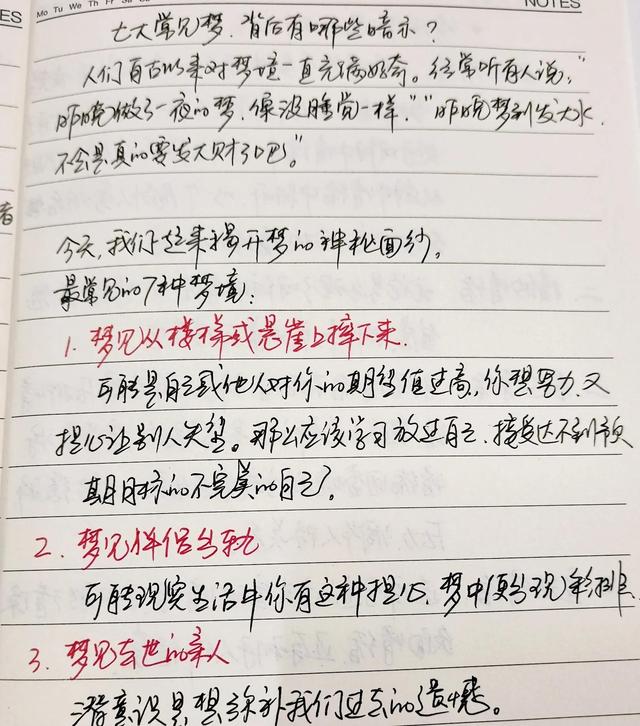 ES
Mo Tu We Th Fr Sa Su
NOTES
七大常见梦，背后有哪些暗示？
人们自古以来对梦境一直充满好奇。经常听有人说，“
昨晚做了一夜的梦，像没睡觉一样，”“昨晚梦到发大水，
不会是真的要发大财了吧”。
者
今天，我们一起来揭开梦的神秘面纱。
最常见的7种梦境：
1. 梦见从楼梯或悬崖上摔下来.
可能是自己或他人对你的期望值过高，你想努力，又
担心让别人失望。那么应该学习放过自己，接受达不到预
期目标的不完美的自己。
2. 梦见伴侣出轨
可能现实生活中你有这种担心，梦中便出现彩排
3. 梦见去世的亲人
潜意识是想弥补我们过去的遗憾。